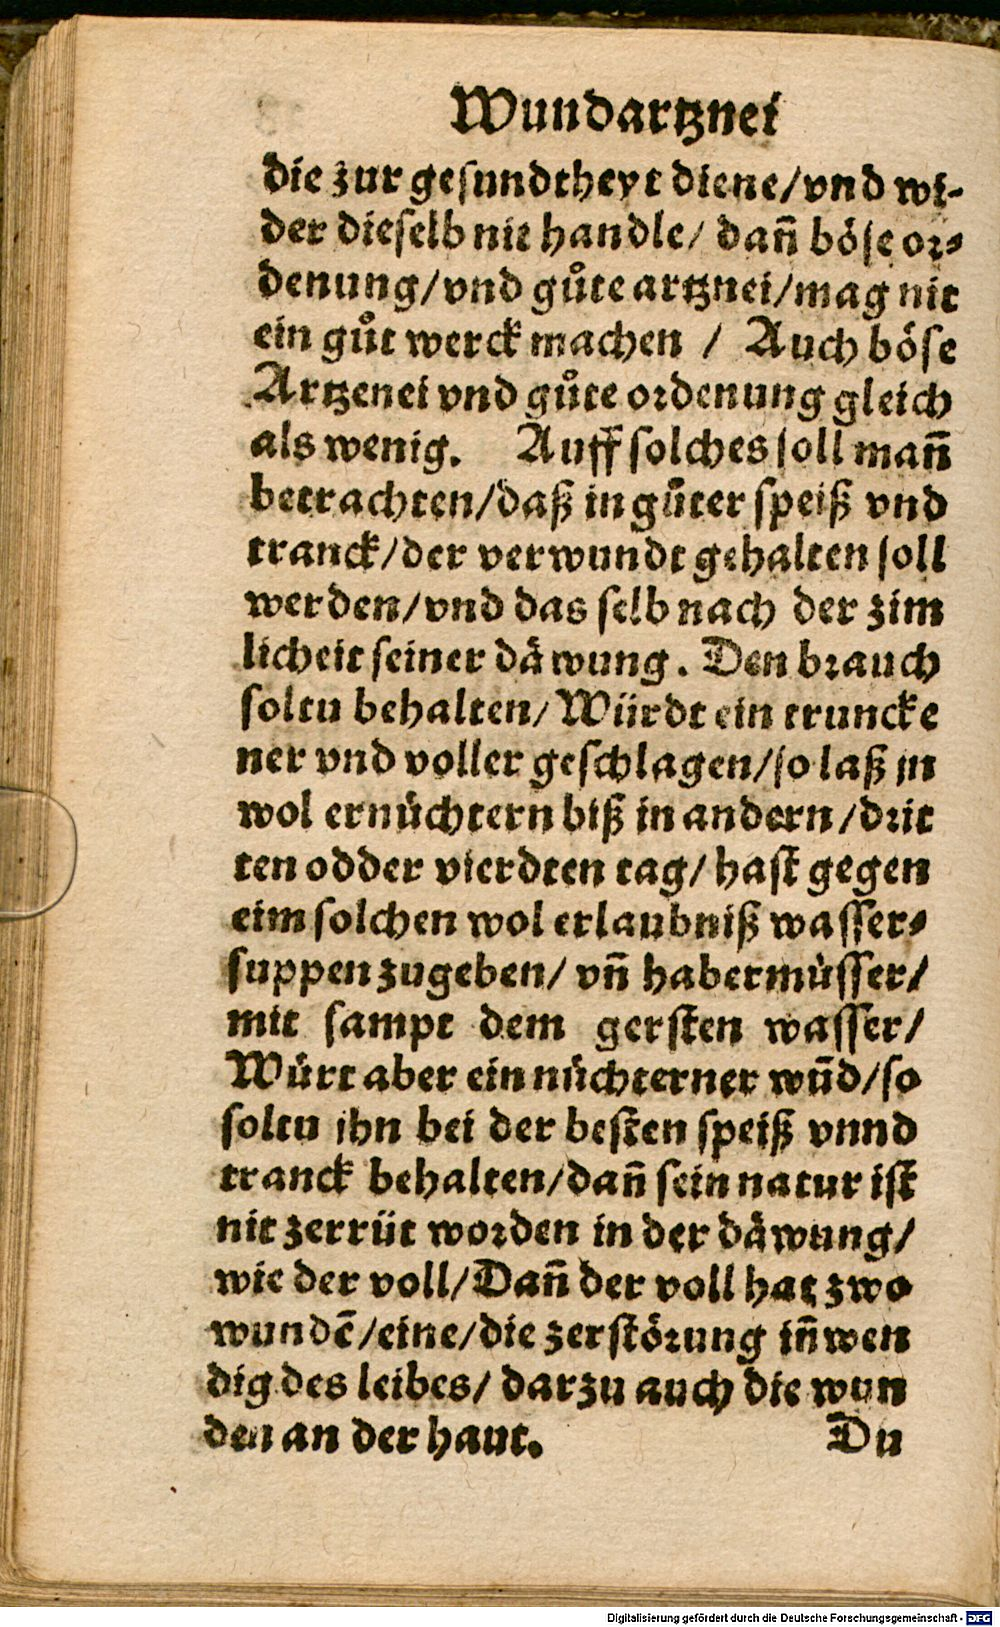 Wundartznei
die zur gesundtheyt diene/vnd wi-
der dieselb nit handle/ dañ böse or-
denung/vnd gůte artznei/mag nit
ein gůt werck machen / Auch böse
Artzenei vnd gůte ordenung gleich
als wenig. Auff solches soll mañ
betrachten/daß in gůter speiß vnd
tranck/der verwundt gehalten soll
werden/vnd das selb nach der zim
licheit seiner däwung. Den brauch
soltu behalten/Würdt ein truncke
ner vnd voller geschlagen/so laß jn
wol ernüchtern biß in andern/drit
ten odder vierdten tag/hast gegen
eim solchen wol erlaubniß wasser-
suppen zugeben/ vñ habermüsser/
mit sampt dem gersten wasser/
Würt aber ein nüchterner wūd/so
soltu jhn bei der besten speiß vnnd
tranck behalten/dañ sein natur ist
nit zerrüt worden in der däwung/
wie der voll/Dañ der voll hat zwo
wundē/eine/die zerstörung iñwen
dig des leibes/ darzu auch die wun
den an der haut. Du
Digitalisierung gefördert durch die Deutsche Forschungsgemeinschaft - DFG